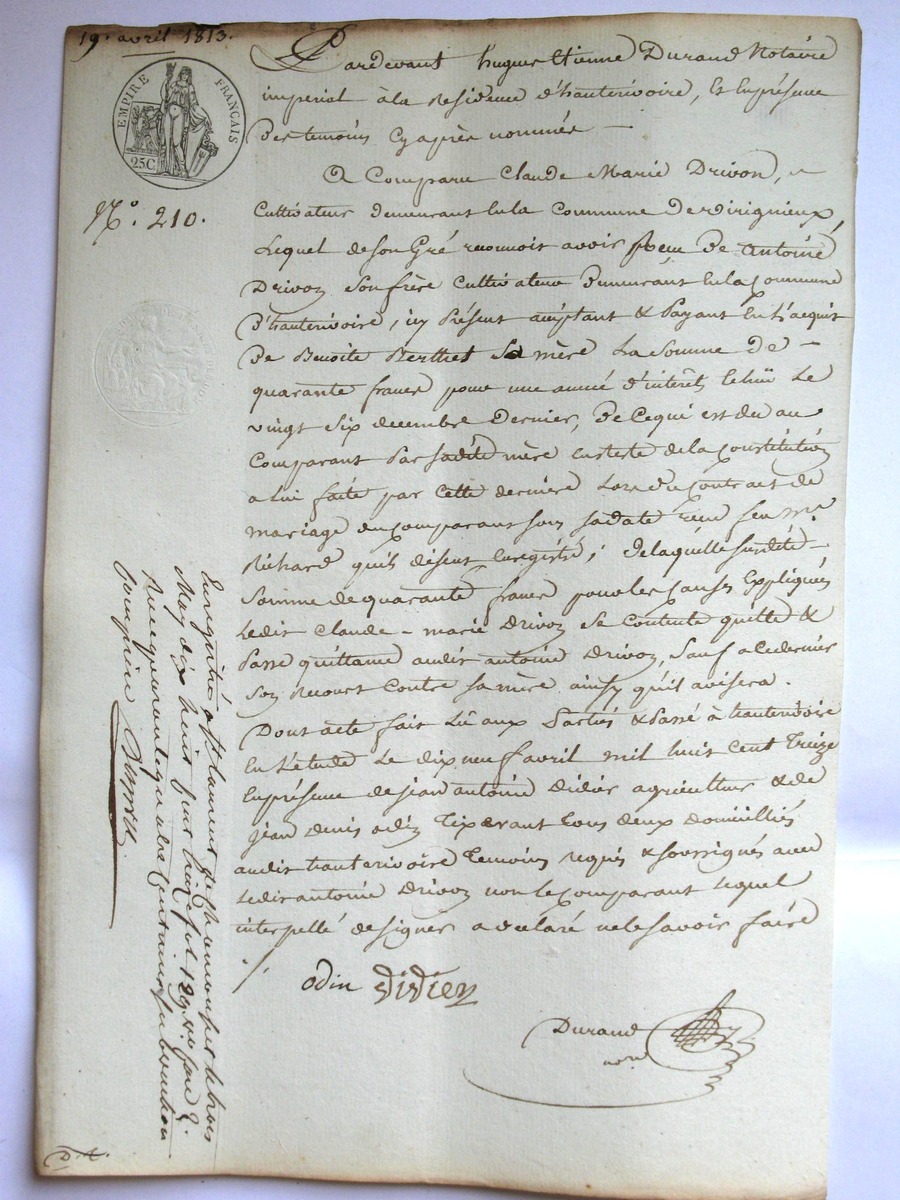 19. avril 1813.
EMPIRE FRANÇAIS
25C
N.° 210.
Pardevant hugues Etienne Durand Notaire
imperial à la Residence d'hauterivoire, Et En présence
Des temoins Cy après nommés —
A Comparu Claude Marie Drivon,
Cultivateur demeurant En la Commune de virignieux,
Lequel de son Gré reconnoit avoir Reçu De Antoine
Drivon Son frère Cultivateur Demeurant En la Commune
D'hauterivoire, icy Présent acceptant & Payant En L'acquit
De Benoite Berthet Sa mère La Somme De —
quarante francs pour une année d'interêt Echüe Le
vingt Six decembre Dernier, De Ce qui est du au
Comparant Par sadite mère En reste de la Constitution
a lui faite par Cette derniere Lors du Contract de
mariage du Comparant sous sa date reçu feu m.e
Richard qu'ils disent Enregistré; de laquelle susdite —
Somme de quarante francs pour les causes Expliquées
Ledit Claude - marie Drivon Se Contente quitte &
Passe quittance audit antoine Drivon, Sauf a Ce dernier
Son recours Contre sa mère ainsy qu'il avisera.
Dont acte fait Lû aux Parties & Passé à hauterivoire
En L'etude Le dix neuf avril mil huit Cent Treize
En présence de jean antoine Didier agriculteur & de
jean Denis odin Tixerant tous deux domiciliés
audit hauterivoire Temoins requis & soussignés avec
Ledit antoine Drivon non le Comparant Lequel
interpellé de signer a declaré ne le savoir faire
odin Didier
Durand
not.re
Enregistré a St Laurent de Chamousset le trois
May dix huit Cent treize fol. 129
Reçu quarante quatre Centimes Subvention
Comprise
D. A.